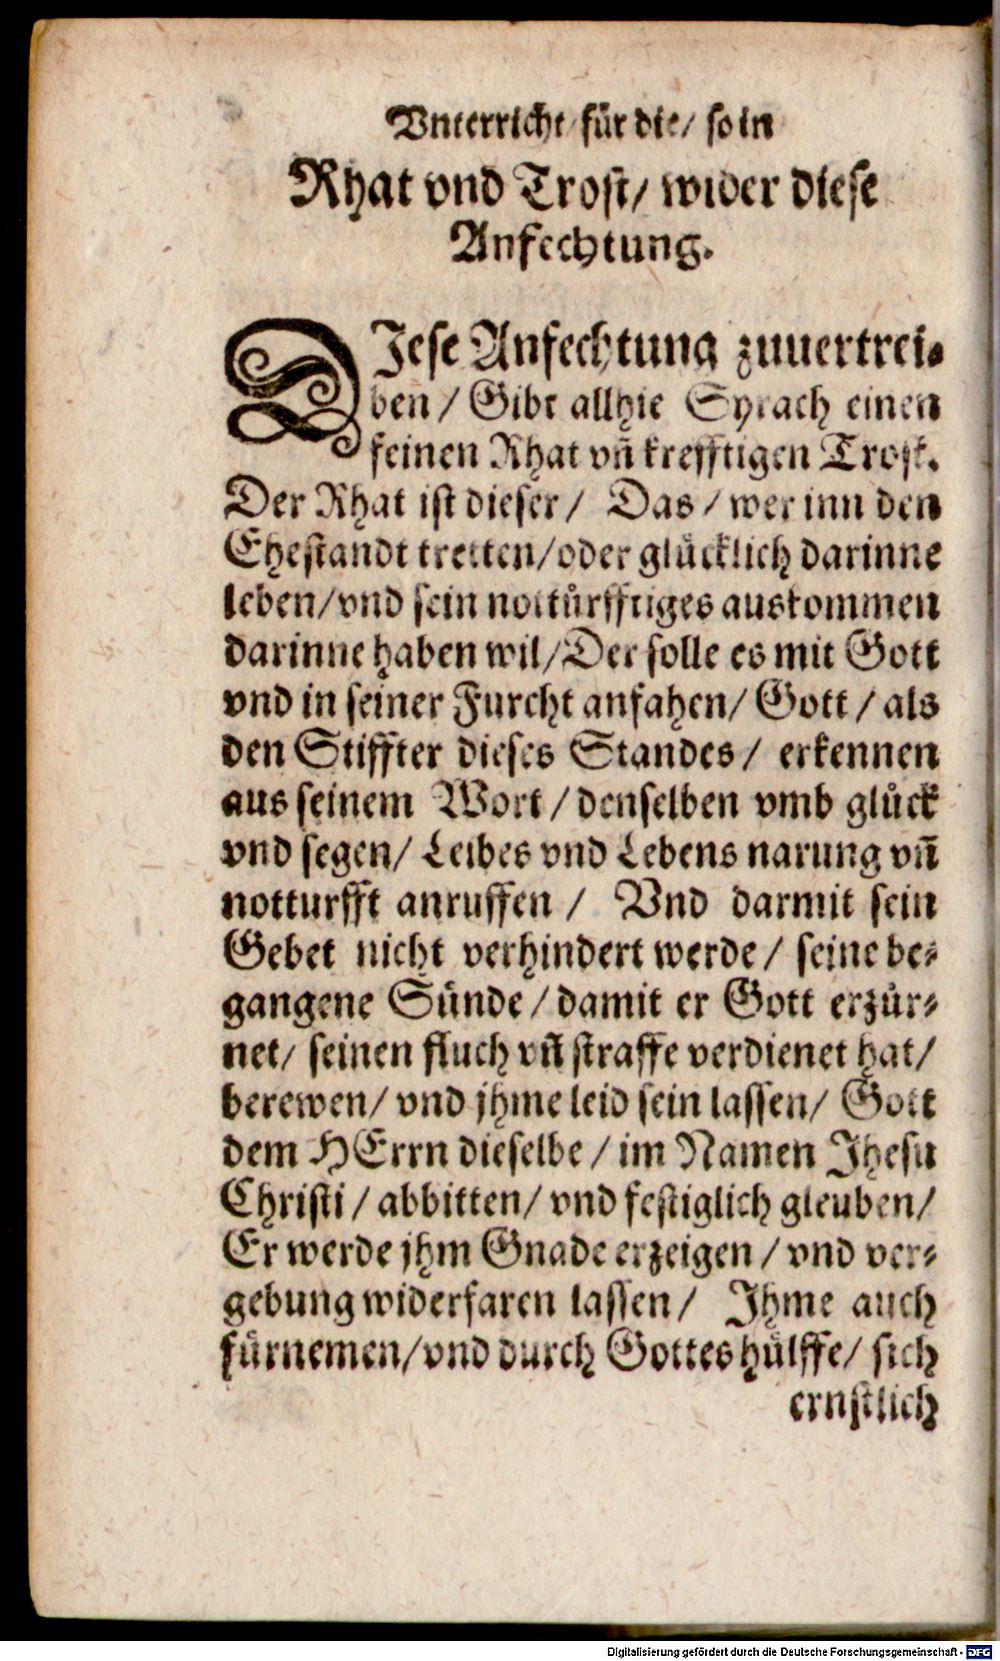 Vnterricht für die/ so in
Rhat vnd Trost/ wider diese
Anfechtung.
DIese Anfechtung zuuertrei⸗
ben / Gibt allhie Syrach einen
feinen Rhat vñ krefftigen Trost.
Der Rhat ist dieser / Das / wer inn den
Ehestandt tretten/oder glücklich darinne
leben/vnd sein nottürfftiges auskommen
darinne haben wil/Der solle es mit Gott
vnd in seiner Furcht anfahen/ Gott / als
den Stiffter dieses Standes / erkennen
aus seinem Wort / denselben vmb glück
vnd segen/ Leibes vnd Lebens narung vñ
notturfft anruffen / Vnd darmit sein
Gebet nicht verhindert werde / seine be⸗
gangene Sünde / damit er Gott erzür⸗
net/ seinen fluch vñ straffe verdienet hat/
berewen/ vnd jhme leid sein lassen/ Gott
dem HErrn dieselbe / im Namen Jhesu
Christi / abbitten/ vnd festiglich gleuben/
Er werde jhm Gnade erzeigen / vnd ver⸗
gebung widerfaren lassen / Jhme auch
fürnemen/vnd durch Gottes hülffe/ sich
ernstlich
Digitalisierung gefördert durch die Deutsche Forschungsgemeinschaft - DFG